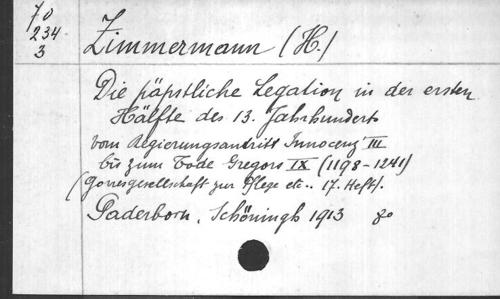 70
234.
3
Zimmermann (H.)
Die päpstliche Legation in der ersten
Hälfte des 13. Jahrhunderts
vom Regierungsantritt Innocenz' III
bis zum Tode Gregors IX (1198-1241)
(Gorresgesellschaft zur Pflege etc.. 17. Heft).
Paderborn, Schöningh 1913 8o